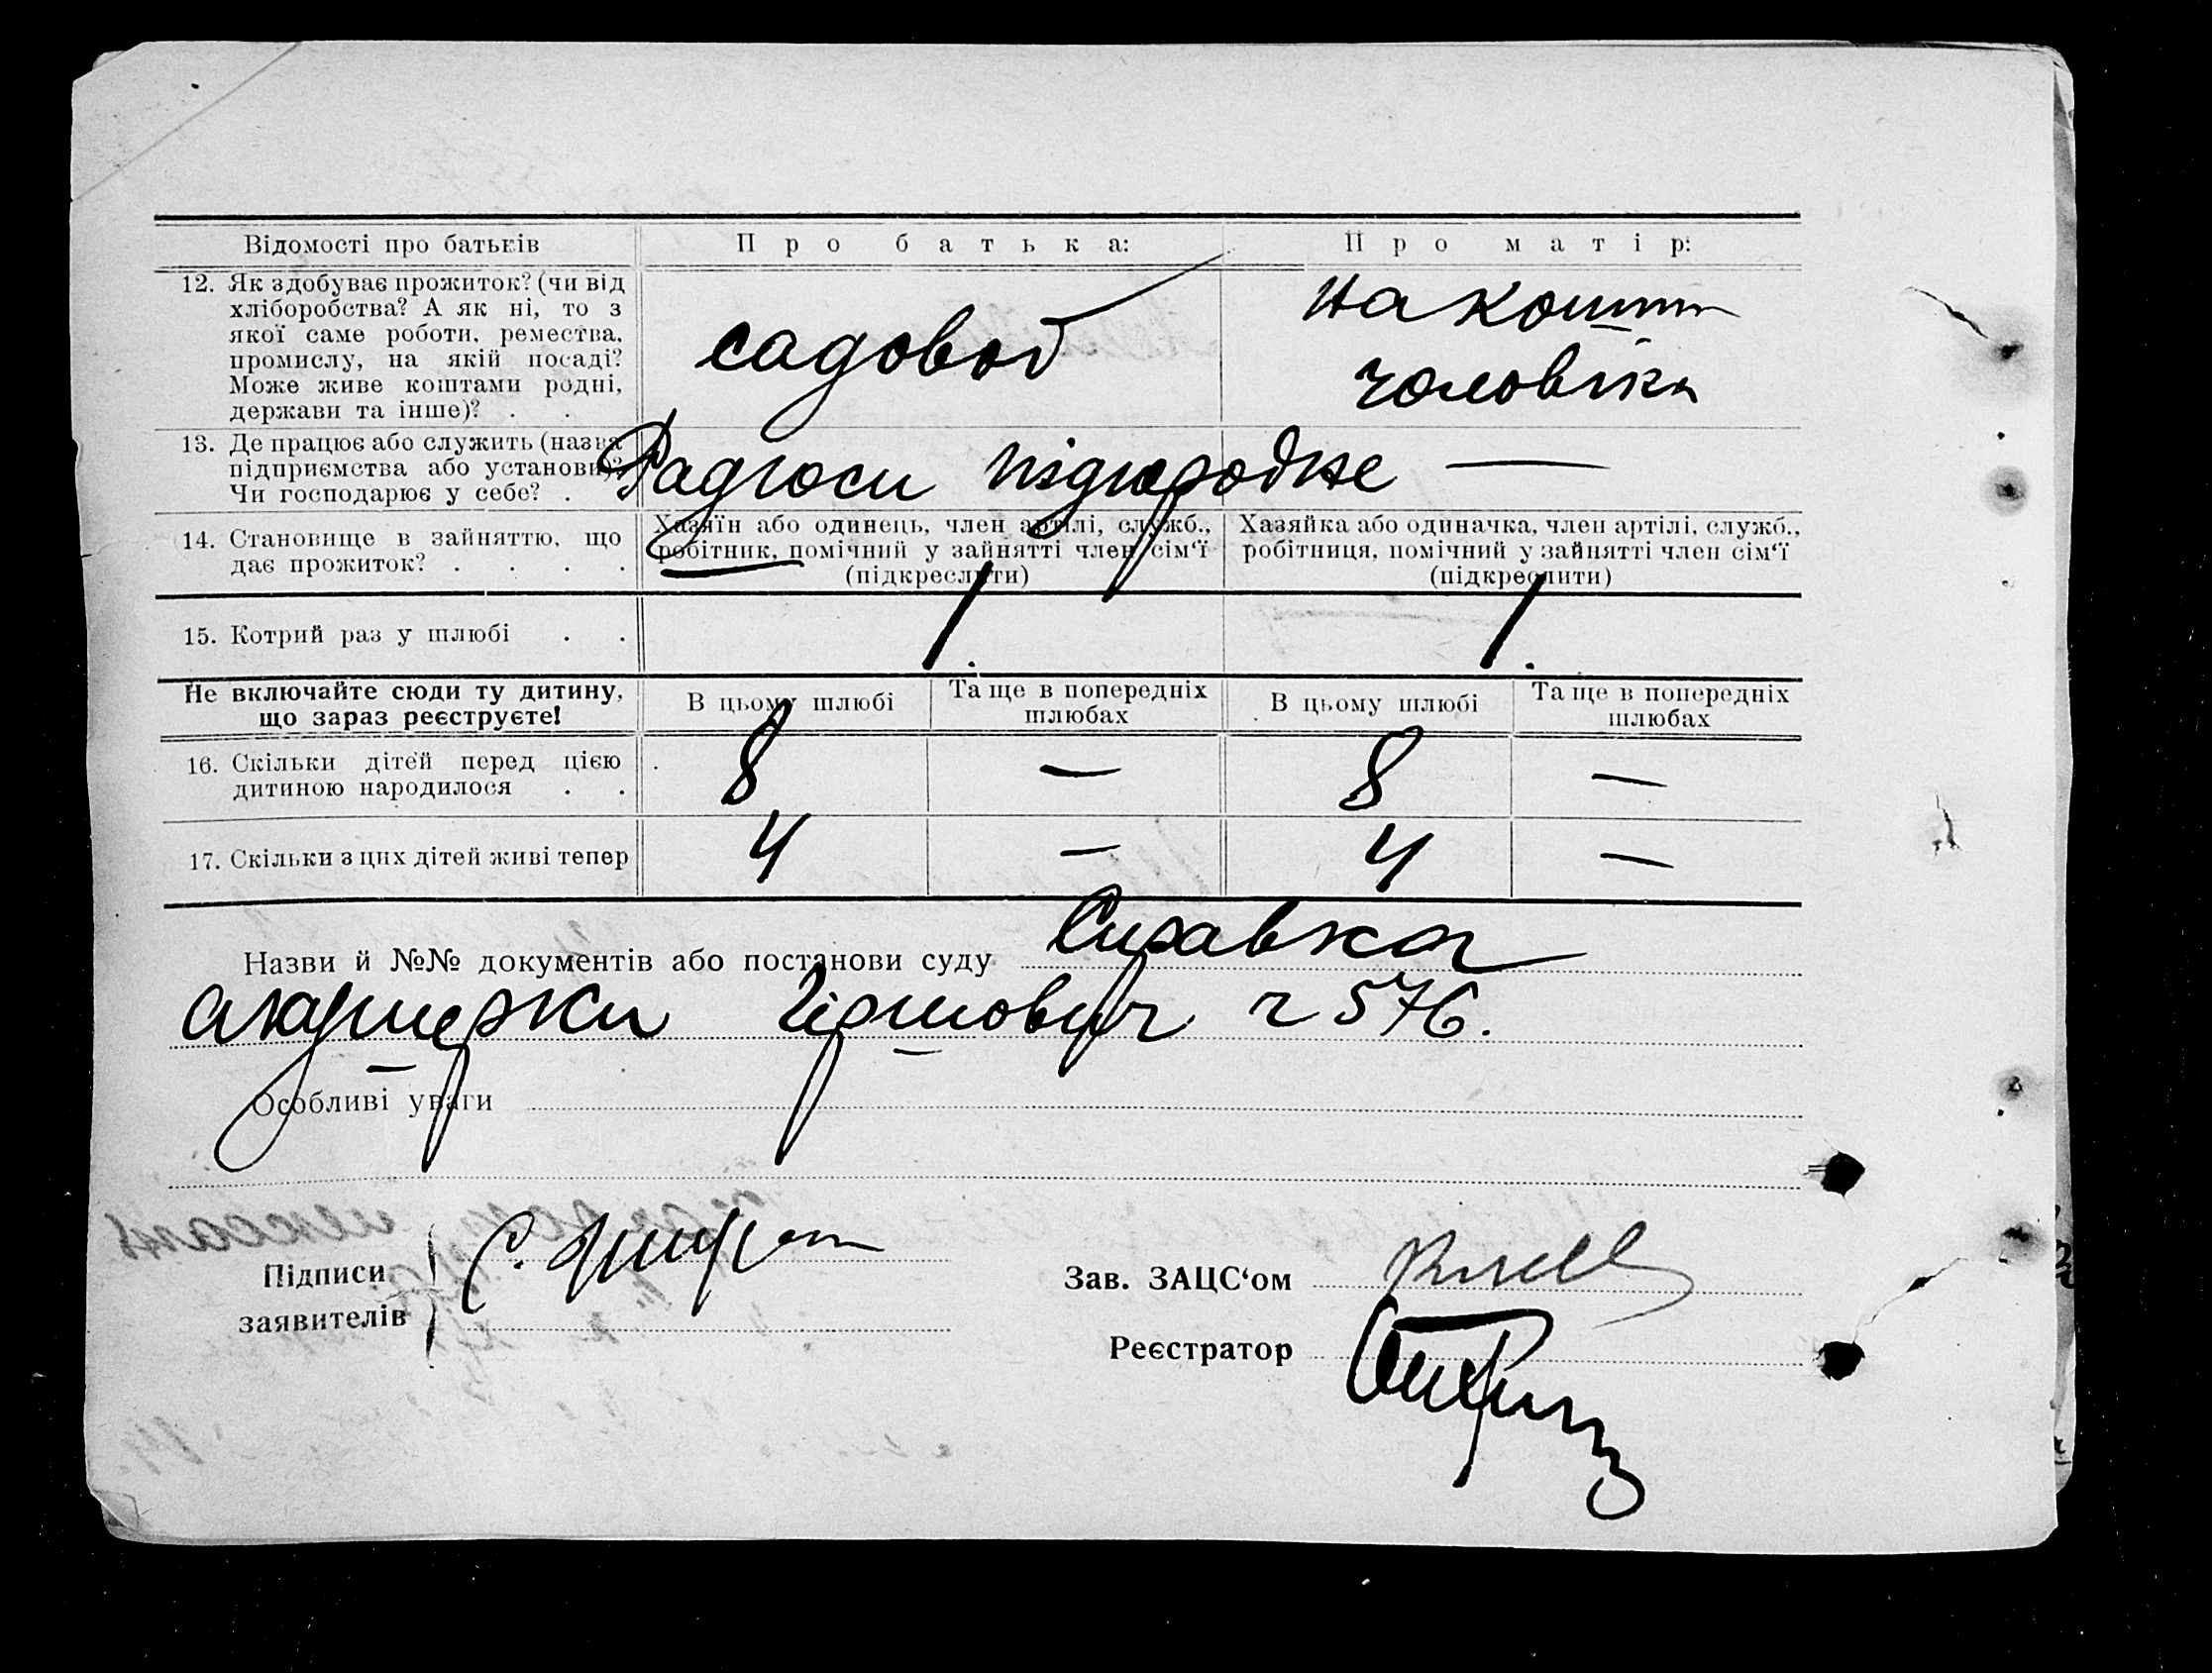 Відомості про батьків
Про батька:
Про матір:
12. Як здобуває прожиток? (чи від
хліборобства? А як ні, то з
якої саме роботи, ремества,
промислу, на якій посаді?
Може живе коштами родні,
держави та інше)? . .
садовод
на кошти
чоловіка
13. Де працює або служить (назва
підприємства або установи)?
Чи господарює у себе? .
Радгосп підгородне —
14. Становище в зайняттю, що
дає прожиток? . . . .
Хазяїн або одинець, член артілі, служб.,
робітник, помічний у зайнятті член сім‘ї
(підкреслити)
Хазяйка або одиначка, член артілі, служб.,
робітниця, помічний у зайнятті член сім‘ї
(підкреслити)
15. Котрий раз у шлюбі . .
1.
1.
Не включайте сюди ту дитину,
що зараз реєструєте!
В цьому шлюбі
Та ще в попередніх
шлюбах
В цьому шлюбі
Та ще в попередніх
шлюбах
16. Скільки дітей перед цією
дитиною народилося . .
8 — 8 —
17. Скільки з цих дітей живі тепер
4 — 4 —
Назви й №№ документів або постанови суду Справка
акушерки Гіршович ч 576.
Особливі уваги
Підписи
заявителів
С.
Зав. ЗАЦС‘ом
Реєстратор